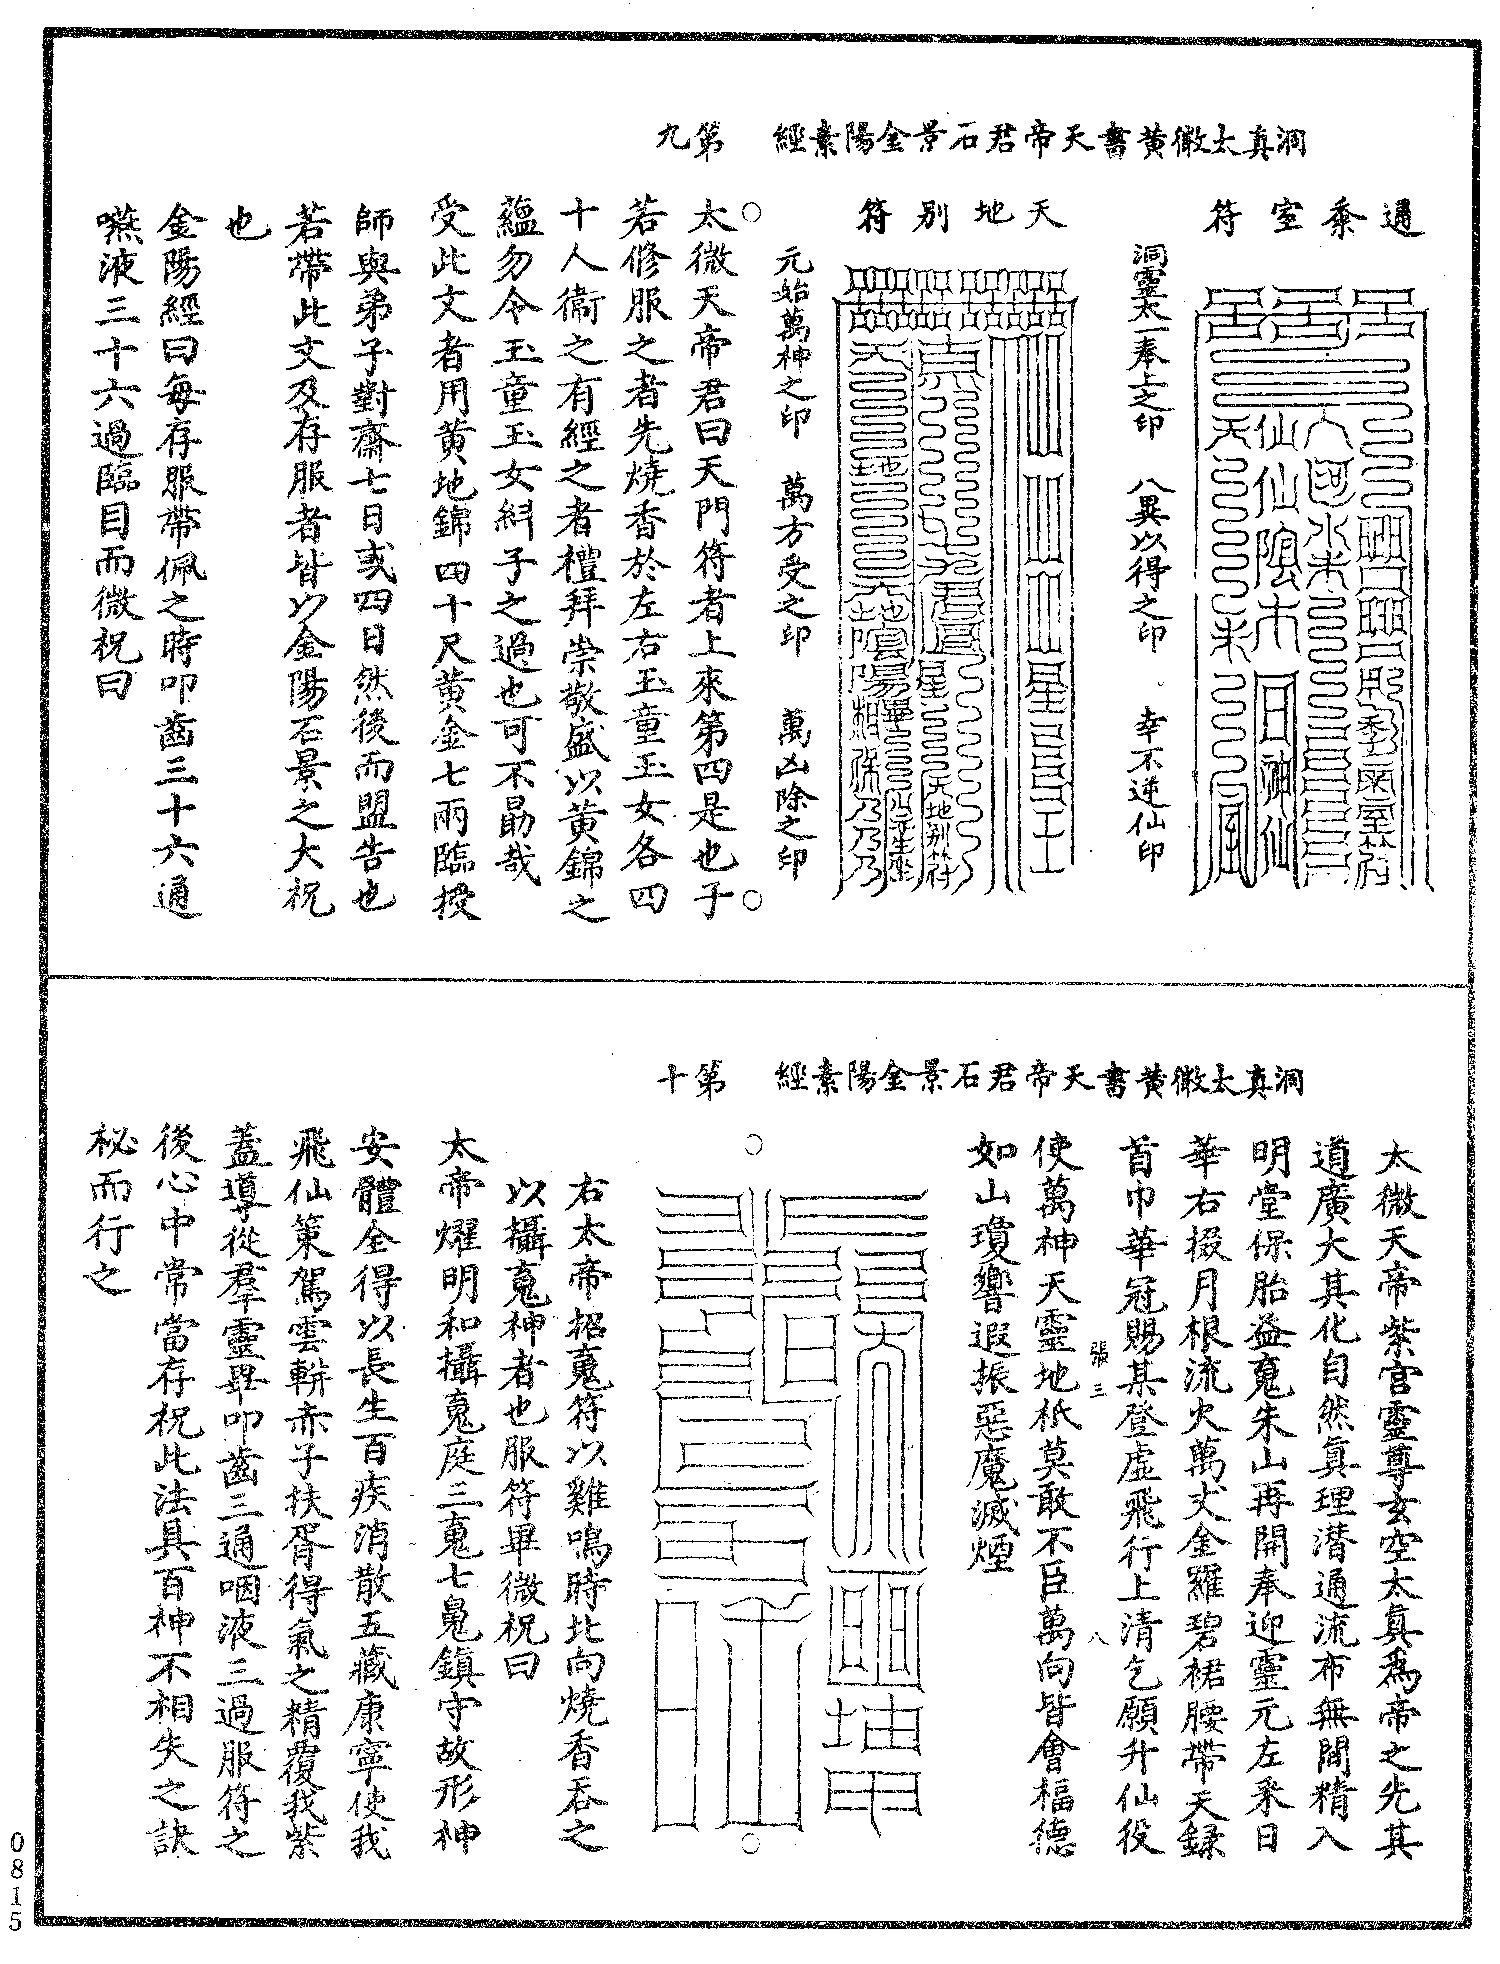 洞真太微黄書天帝君石景金陽素經　第九
通桼室符
洞靈太一奉上之印　八異以得之印　幸不逆仙印
天地別符
元始萬神之印　萬方受之印　萬凶除之印
太微天帝君曰天門符者上來第四是也子
若修服之者先燒香於左右玉童玉女各四
十人衞之有經之者禮拜崇敬盛以黄錦之
蘊勿令玉童玉女糾子之過也可不勗哉
受此文者用黄地錦四十尺黄金七兩臨授
師與弟子對齋七日或四日然後而盟告也
若帶此文及存服者皆以金陽石景之大祝
也
金陽經曰每存服帶佩之時叩齒三十六通
嚥液三十六過臨目而微祝曰
洞真太微黄書天帝君石景金陽素經　第十
太微天帝紫宫靈尊玄空太真為帝之先其
道廣大其化自然真理潜通流布無閒精入
明堂保胎益䰟朱山再開奉迎靈元左采日
華右掇月根流火萬丈金羅碧裙腰帶天録
首巾華冠賜某登虚飛行上清乞願升仙役
張三
八
使萬神天靈地祇莫敢不臣萬向皆會楅德
如山瓊響遐振惡魔滅煙
右太帝招䰟符以雞鳴時北向燒香吞之
以攝䰟神者也服符畢微祝曰
太帝燿明和攝䰟庭三䰟七䰟鎮守故形神
安體全得以長生百疾消散五藏康寧使我
飛仙策駕雲輧赤子扶胥得氣之精覆我紫
蓋導從羣靈畢叩齒三通咽液三過服符之
後心中常當存祝此法具百神不相失之訣
祕而行之
0815